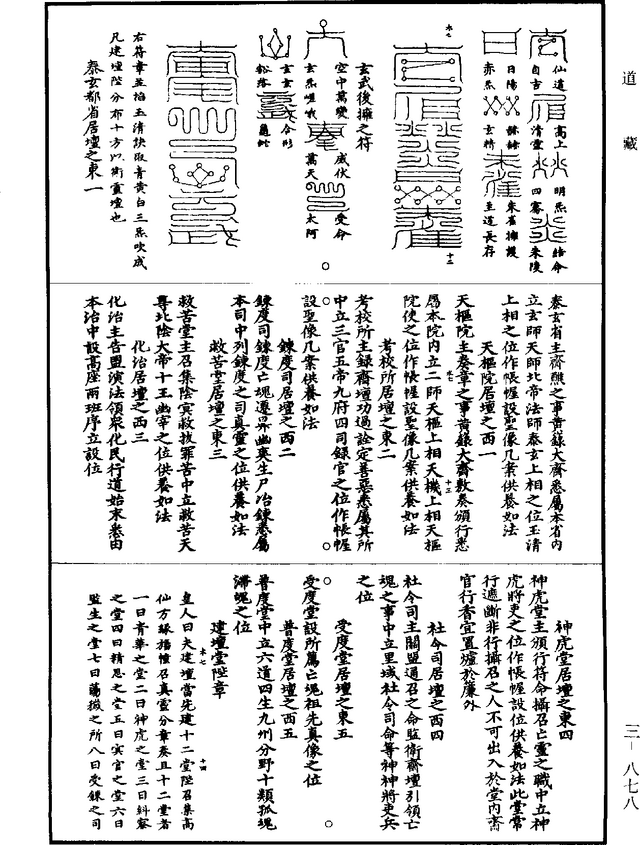 道藏
仙道 高上 明炁 結命
自古 清靈 四騫 朱陵
日陽 赫赫 朱雀擁護
赤炁 玄精 主道長存
玄武後擁之符
空中萬變 威伏 受命
萬天 太阿
玄玄 合形
右符章並掐玉清訣取青黃白三炁吹成
凡建壇陛分布十方以衛靈壇也
泰玄都省居壇之東一
泰玄省主齋醮之事黃錄大齋悉屬本省內
立玄師天師北帝法師泰玄上相之位玉清
上相之位作帳幄設聖像几案供養如法
天樞院居壇之西一
天樞院主奏章之事黃錄大齋敷奏頒行悉
屬本院內立二師天樞上相天機上相天樞
院使之位作帳幄設聖像几案供養如法
考校所居壇之東二
考校所主錄齋壇功過詮定善惡悉屬其所
中立三官五帝九府四司錄官之位作帳幄
設聖像几案供養如法
鍊度司居壇之西二
鍊度司鍊度亡魂遷昇幽爽生尸冶鍊悉屬
本司中列鍊度之司真靈之位供養如法
救苦堂居壇之東三
救苦堂主召集陰冥救拔罪苦中立救苦天
尊北陰大帝十王幽宰之位供養如法
化治居壇之西三
化治主告盟演法領眾化民行道始末悉由
本治中設高座兩班序立設位
神虎堂居壇之東四
神虎堂主頒行符命攝召亡靈之職中立神
虎將吏之位作帳幄設位供養如法此堂常
行遮斷非行攝召之人不可出入於堂內齋
官行香宜置爐於簾外
社令司居壇之西四
社令司主關盟通召之命監衛齋壇引領亡
魂之事中立里域社令司命等神神將吏兵
之位
受度堂居壇之東五
受度堂設所薦亡魂祖先真像之位
普度堂居壇之西五
普度堂中立六道四生九州分野十類孤魂
滯魄之位
建壇堂陛章
皇人曰夫建壇當先建十二堂陛召集高
仙方緣播幢召真靈分章奏且十二堂者
一曰青華之堂二曰神虎之堂三曰糾察
之堂四曰精思之堂五曰寅官之堂六曰
監生之堂七曰蕩穢之所八曰受鍊之司
三－八七八